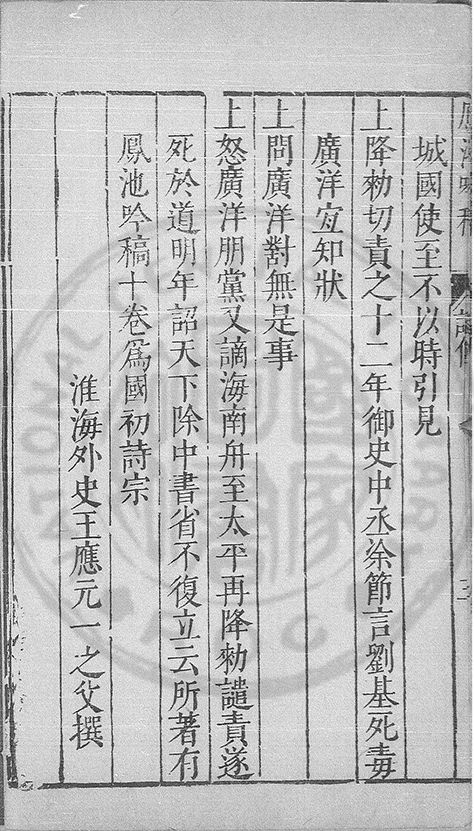 城國使至不以時引見
上降勑切責之十二年御史中丞涂節言劉基死毒
廣洋宐知狀
上問廣洋對無是事
上怒廣洋朋黨又謫海南舟至太平再降勑譴責遂
死於道明年詔天下除中書省不復立云所著有
鳳池吟稿十卷爲國初詩宗
淮海外史王應元一之父撰